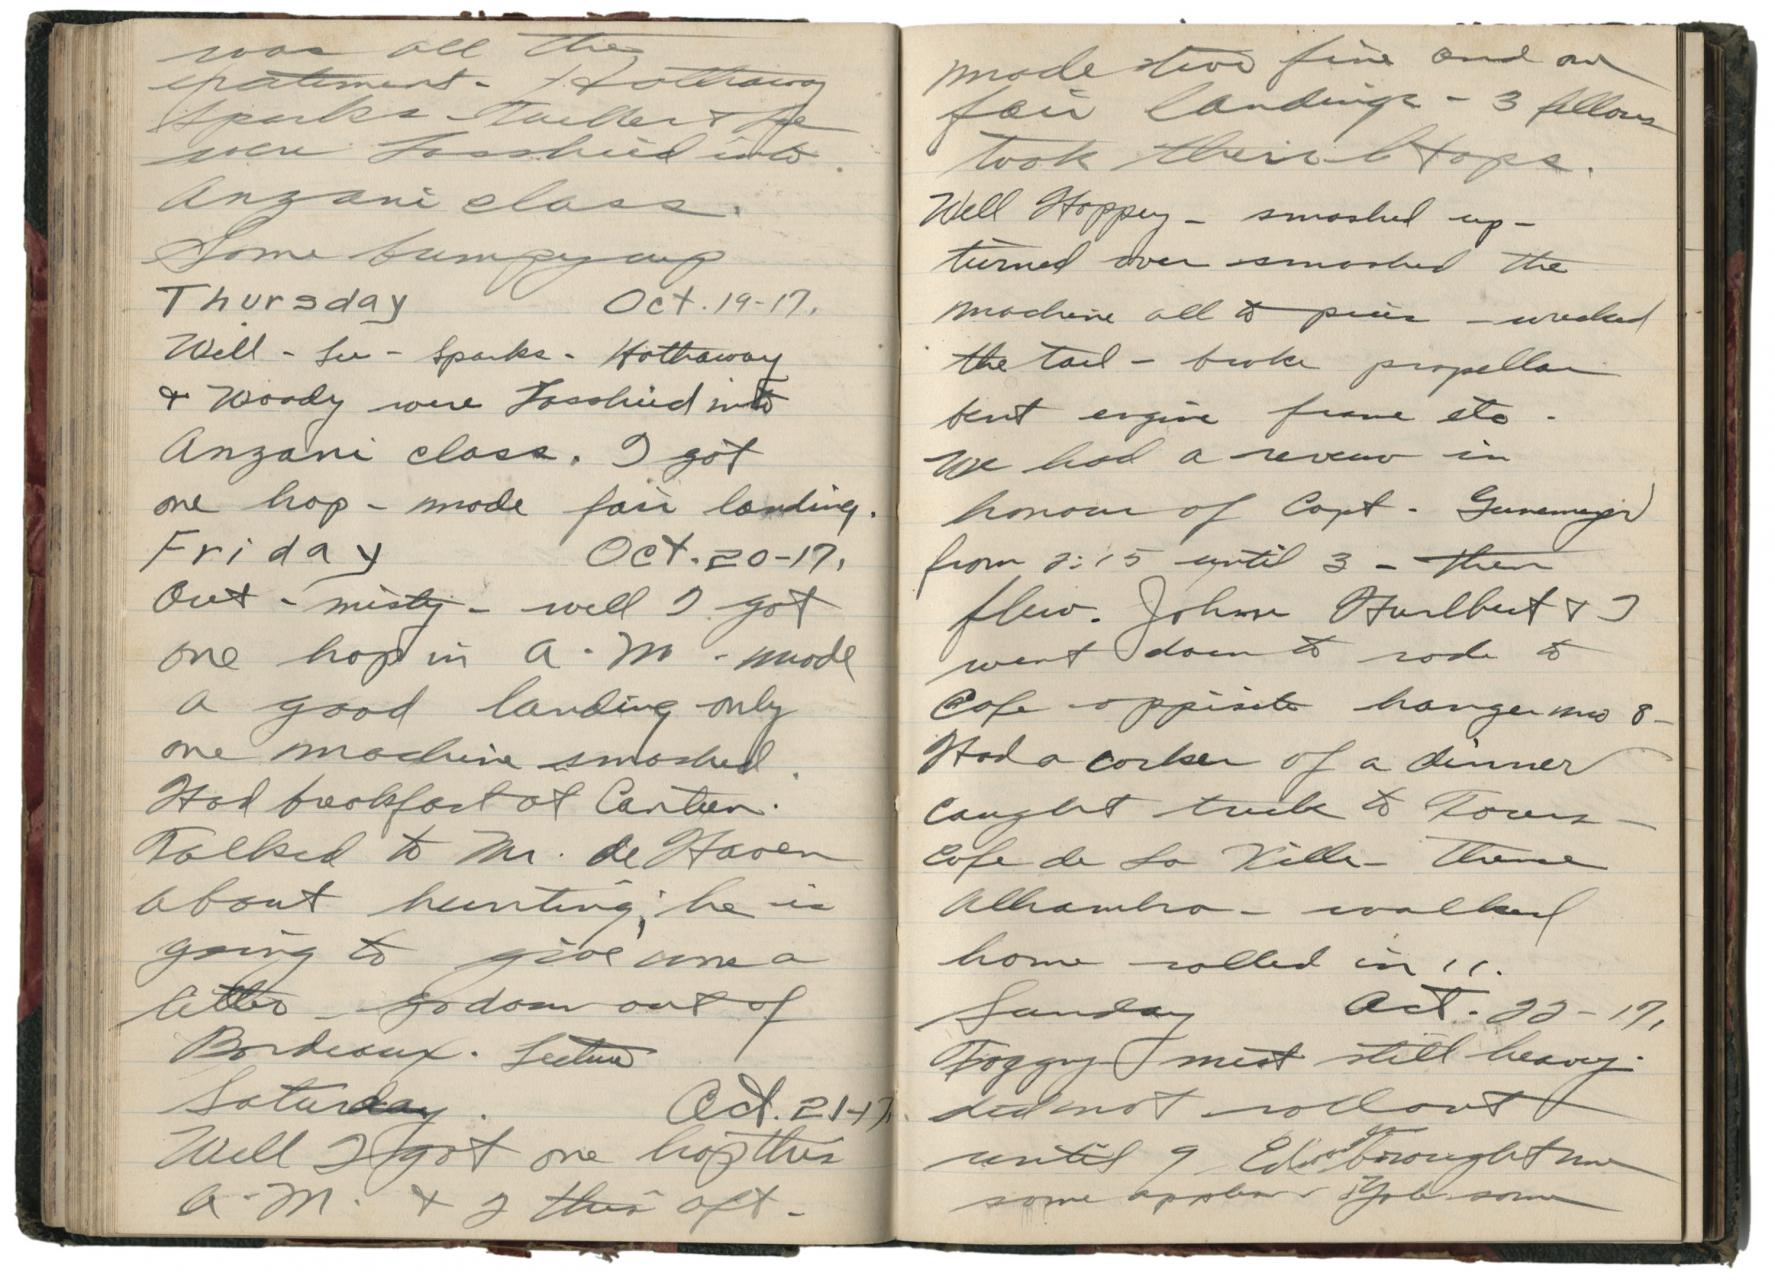 was all the
statement - Hathaway
Sparks - & Lee
were into
Anzani class.
Some bumpy up
Thursday Oct. 19-17.
Well - Lee - Sparks - Hathaway
& Woody were into
Anzani class. I got
one hop - made fair landing.
Friday Oct. 20-17.
Out - misty - well I got
one hop in A.M. - made
a good landing only
one machine smashed.
Had breakfast at Canteen.
Talked to Mr. de Haven
about hunting; he is
going to give me a
letter - go down out of
Bordeaux. Lecture
Saturday. Oct. 21-17.
Well I got one hop this
A.M. & 2 this aft -
made two fine and one
fair landings - 3 fellows
took their 6 hops.
Well Hoppey - smashed up -
turned over smashed the
machine all to pieces - wrecked
the tail - broke propellar
bent engine frame etc -
We had a review in
honour of Capt.
from 2:15 until 3 - then
flew. Hurlbut & I
went down to rode to
Cafe oppisite hanger no 8 -
Had a corker of a dinner
caught truck to Tours -
Cafe de La Ville - Thence
Alhambra - walked
home rolled in 11.
Sunday Oct. 22-17.
Foggy mist still heavy.
did not roll out
until 9 brought me
some apples some